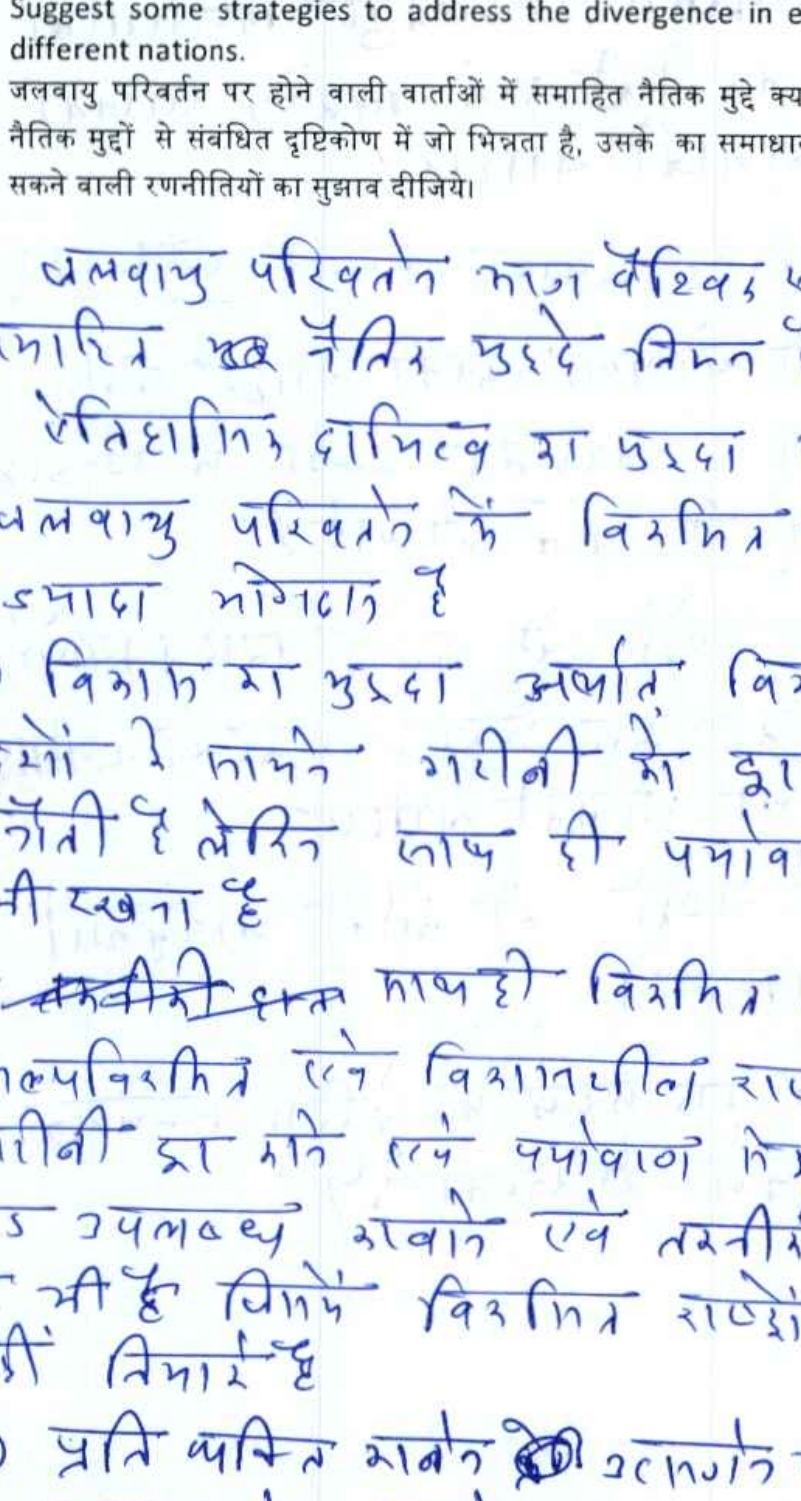 Suggest some strategies to address the divergence in e
different nations.
जलवायु परिवर्तन पर होने वाली वार्ताओं में समाहित नैतिक मुद्दे क्य
नैतिक मुद्दों से संबंधित दृष्टिकोण में जो भिन्नता है, उसके का समाधा
सकने वाली रणनीतियों का सुझाव दीजिये।
जलवायु परिवर्तन आज वैश्विक
नैतिक मुद्दे निम्न
ऐतिहासिक दायित्व का मुद्दा
जलवायु परिवर्तन में विकसित
ज्यादा योगदान है
विकास का मुद्दा अर्थात् वि
सामने गरीबी को दू
है लेकिन साथ ही पर्याव
भी रखना है
साथ ही विकसित
अल्पविकसित एवं विकासशील रा
गरीबी दूर करने एवं पर्यावरण
उपलब्ध करवाने एवं तकनीकी
भी है जिसमें विकसित राष्ट्रों
प्रति व्यक्ति कार्बन उत्सर्जन